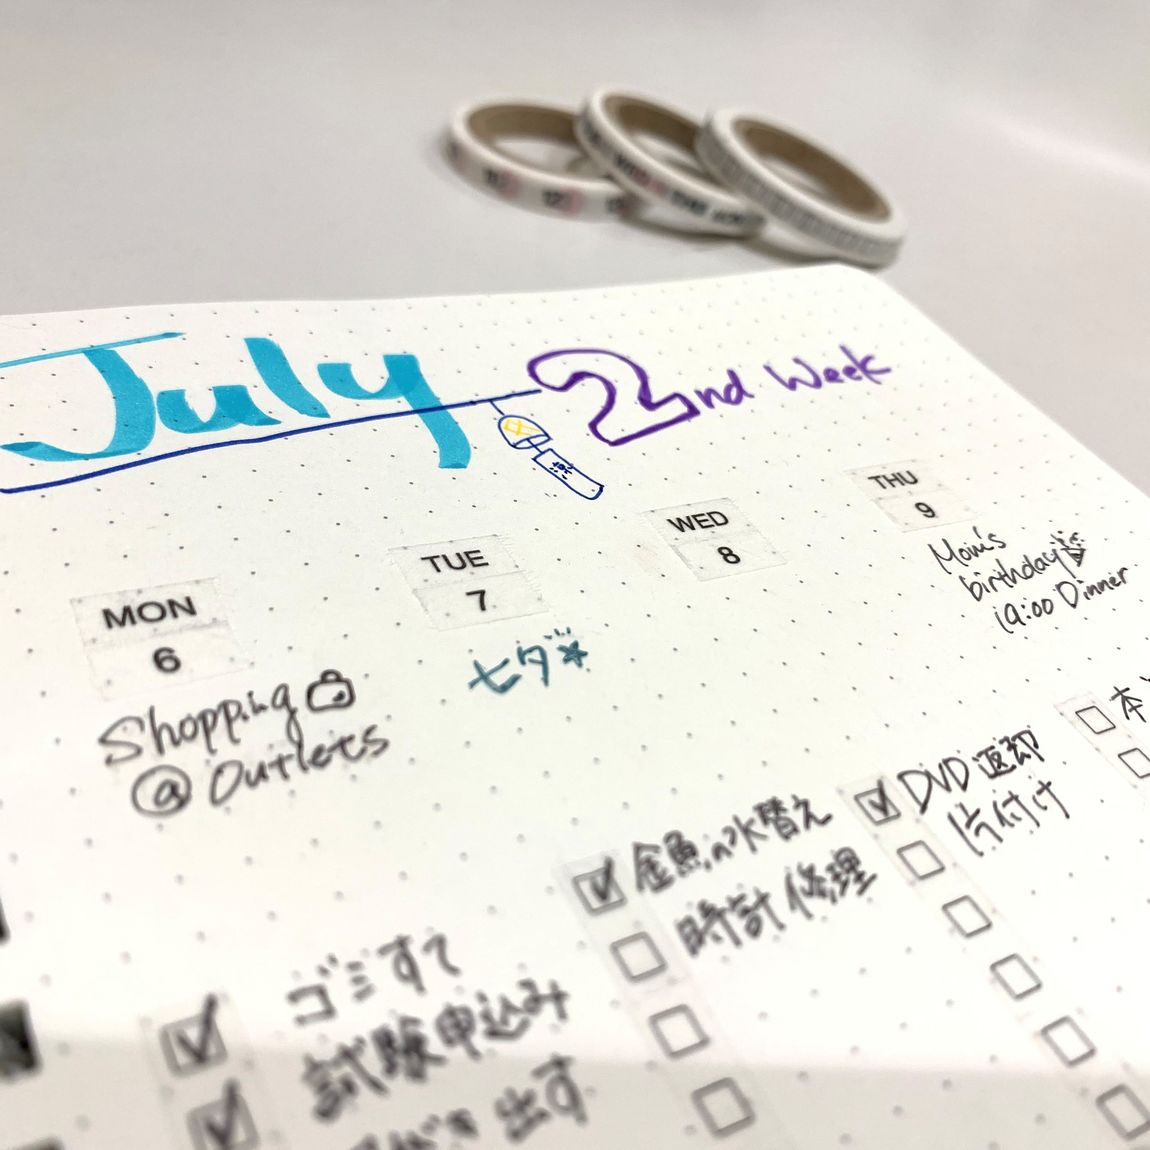 July 2nd Week
MON
6
Shopping
@ Outlets
TUE
7
七夕
WED
8
THU
9
Mom's
birthday
19:00 Dinner
ゴミすて
試験申込み
出す
金魚の水替え
時計修理
DVD返却
片付け
本